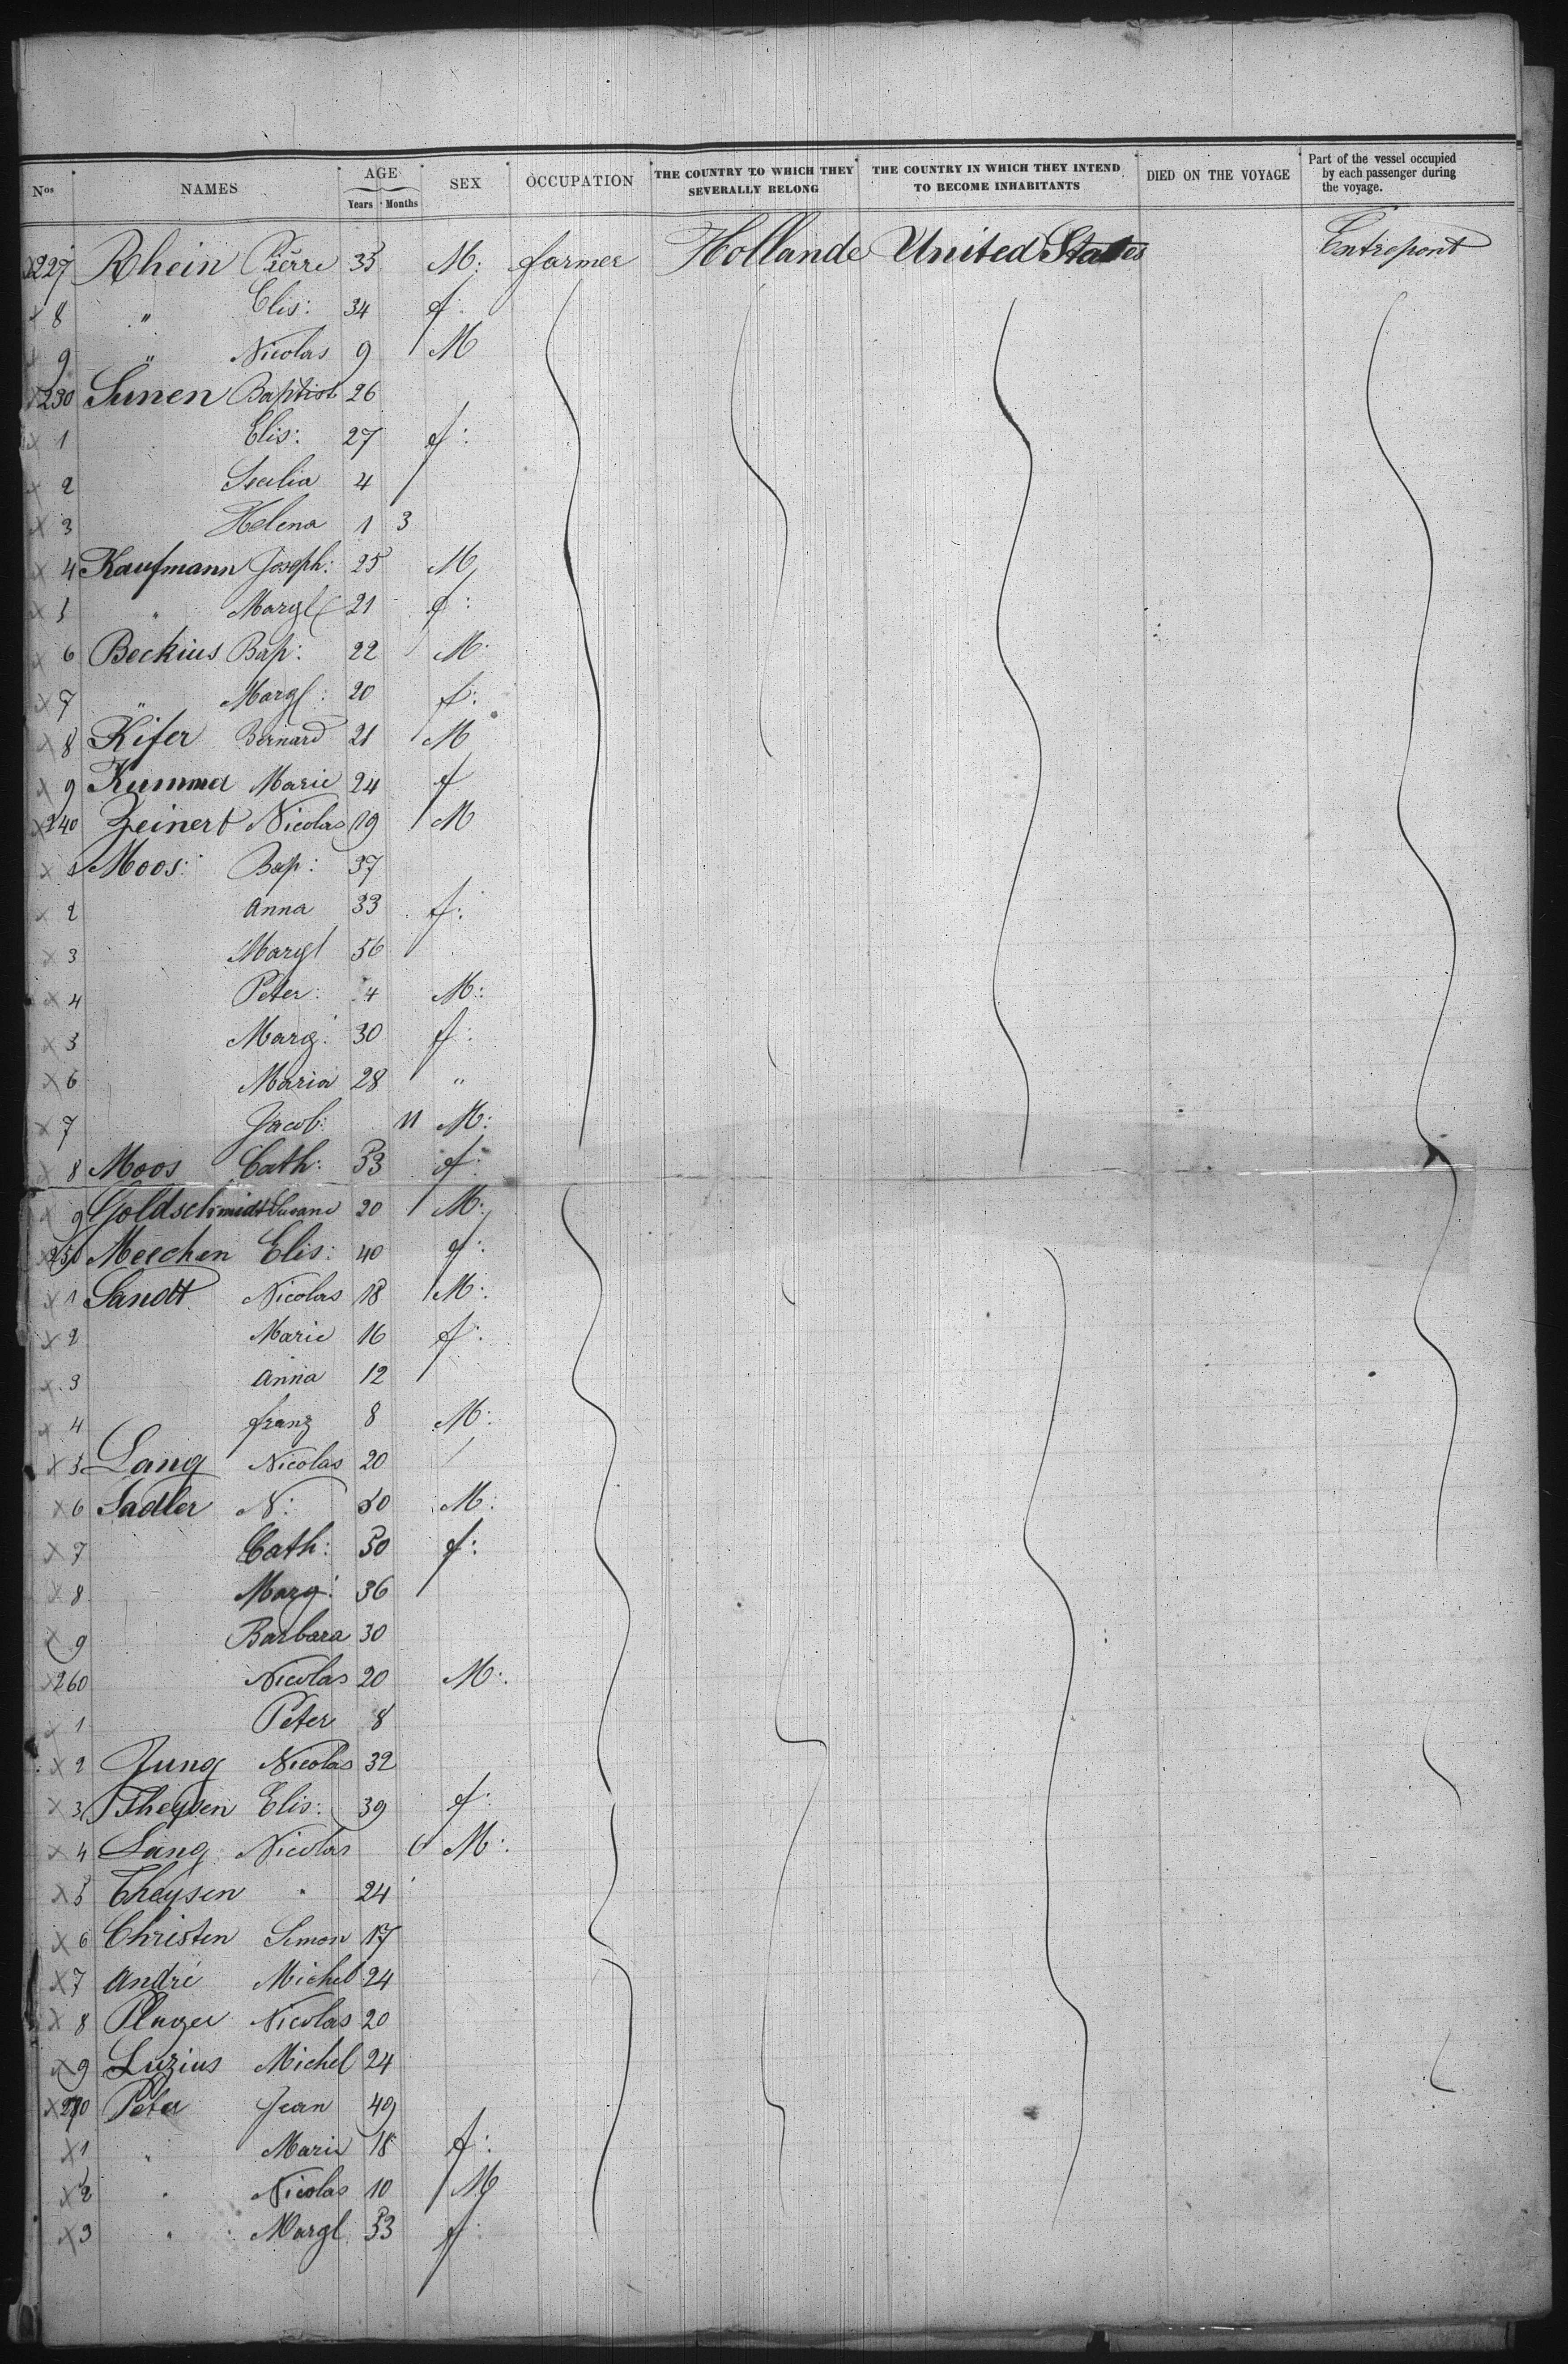 Nos NAMES AGE Years Months SEX OCCUPATION THE COUNTRY TO WHICH THEY SEVERALLY BELONG THE COUNTRY IN WHICH THEY INTEND TO BECOME INHABITANTS DIED ON THE VOYAGE Part of the vessel occupied by each passenger during the voyage.
x227 Rhein Pierre 35 M: farmer Hollande United States Entrepont
x 8 " Elis: 34 f:
x 9 " Nicolas 9 M
x230 Sunen Baptist 26
x 1 Elis: 27 f:
x 2 4
x 3 Helena 1 3
x 4 Kaufmann Joseph: 25 M
x 5 " Margt 21 f:
x 6 Beckius Bap: 22 M:
x 7 " Margt: 20 f:
x 8 Kifer Bernard 21 M
x 9 Kumma Marie 24 f
x240 Zeinert Nicolas 19 M
x 1 Moos: Bap: 37
x 2 Anna 33 f:
x 3 Margt 56
x 4 Peter: 4 M:
x 5 Marg: 30 f:
x 6 Maria 28 "
x 7 Jacob: 11 M:
x 8 Moos Cath: 53 f:
x 9 Goldschmidt 20 M:
x250 Meechen Elis: 40 f:
x 1 Sandt Nicolas 18 M:
x 2 Marie 16 f:
x 3 Anna 12
x 4 franz 8 M:
x 5 Lang Nicolas 20
x 6 Sadler N: 50 M:
x 7 Cath: 50 f:
x 8 Marg: 36
x 9 Barbara 30
x260 Nicolas 20 M:
x 1 Peter 8
x 2 Jung Nicolas 32
x 3 Theysen Elis: 39 f:
x 4 Lang Nicolas 6 M:
x 5 Theysen " 24
x 6 Christen Simon 17
x 7 André Michel 24
x 8 Plager Nicolas 20
x 9 Luzius Michel 24
x270 Peter Jean 49
x 1 " Marie 18 f:
x 2 " Nicolas 10 M
x 3 " Margt 53 f: